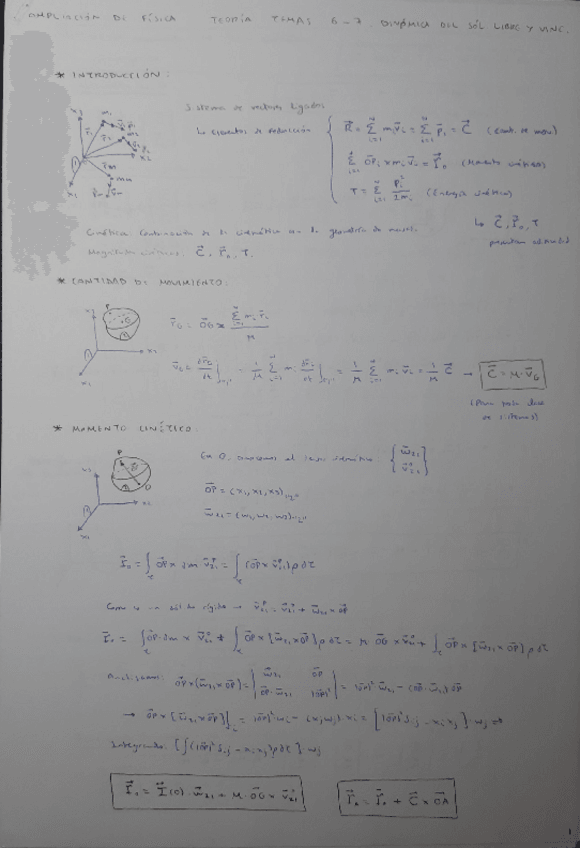 AMPLIACIÓN DE FÍSICA TEORÍA TEMAS 6-7. DINÁMICA DEL SÓL LIBRE Y VINC.
* INTRODUCCIÓN:
Sistema de vectores ligados
↳ elementos de reducción
R̄ = Σ mᵢv̄ᵢ = Σ p̄ᵢ = C̄ (cant. de mov)
Σ OP̄ᵢ × mᵢv̄ᵢ = Γ̄₀ (Momento cinético)
T = Σ pᵢ²/2mᵢ (Energía cinética)
↳ C̄, Γ̄₀, T
Cinética: Combinación de la cinemática con la geometría de masas.
Magnitudes cinéticas: C̄, Γ̄₀, T.
* CANTIDAD DE MOVIMIENTO:
r̄_G = OḠ = Σ mᵢ r̄ᵢ / M
v̄_G = dr̄_G/dt = 1/M Σ mᵢ dr̄ᵢ/dt = 1/M Σ mᵢ v̄ᵢ = 1/M C̄ → C̄ = M·v̄_G
(Para toda clase
de sistemas)
* MOMENTO CINÉTICO:
En O, conocemos el campo cinemático { ω̄₂₁ v̄₂₁⁰ }
OP̄ = (x₁, x₂, x₃)
ω̄₂₁ = (ω₁, ω₂, ω₃)
Γ̄₀ = ∫ OP̄ × dm v̄₂₁ᴾ = ∫ (OP̄ × v̄₂₁ᴾ) ρ dτ
Como es un sólido rígido → v̄₂₁ᴾ = v̄₂₁⁰ + ω̄₂₁ × OP̄
Γ̄₀ = ∫ OP̄·dm × v̄₂₁⁰ + ∫ OP̄ × [ω̄₂₁ × OP̄] ρ dτ = M·OḠ × v̄₂₁⁰ + ∫ OP̄ × [ω̄₂₁ × OP̄] ρ dτ
Analizamos: OP̄ × (ω̄₂₁ × OP̄) = | ω̄₂₁ OP̄ ; OP̄·ω̄₂₁ |OP̄|² | = |OP̄|² ω̄₂₁ − (OP̄·ω̄₂₁) OP̄
→ OP̄ × [ω̄₂₁ × OP̄]ᵢ = |OP̄|² ωᵢ − (xⱼωⱼ)·xᵢ = [|OP̄|² δᵢⱼ − xᵢxⱼ]·ωⱼ ⇒
Integrando: [∫(|OP̄|² δᵢⱼ − xᵢxⱼ) ρ dτ]·ωⱼ
Γ̄₀ = Ī(O)·ω̄₂₁ + M·OḠ × v̄₂₁⁰
Γ̄_A = Γ̄₀ + C̄ × OĀ
1